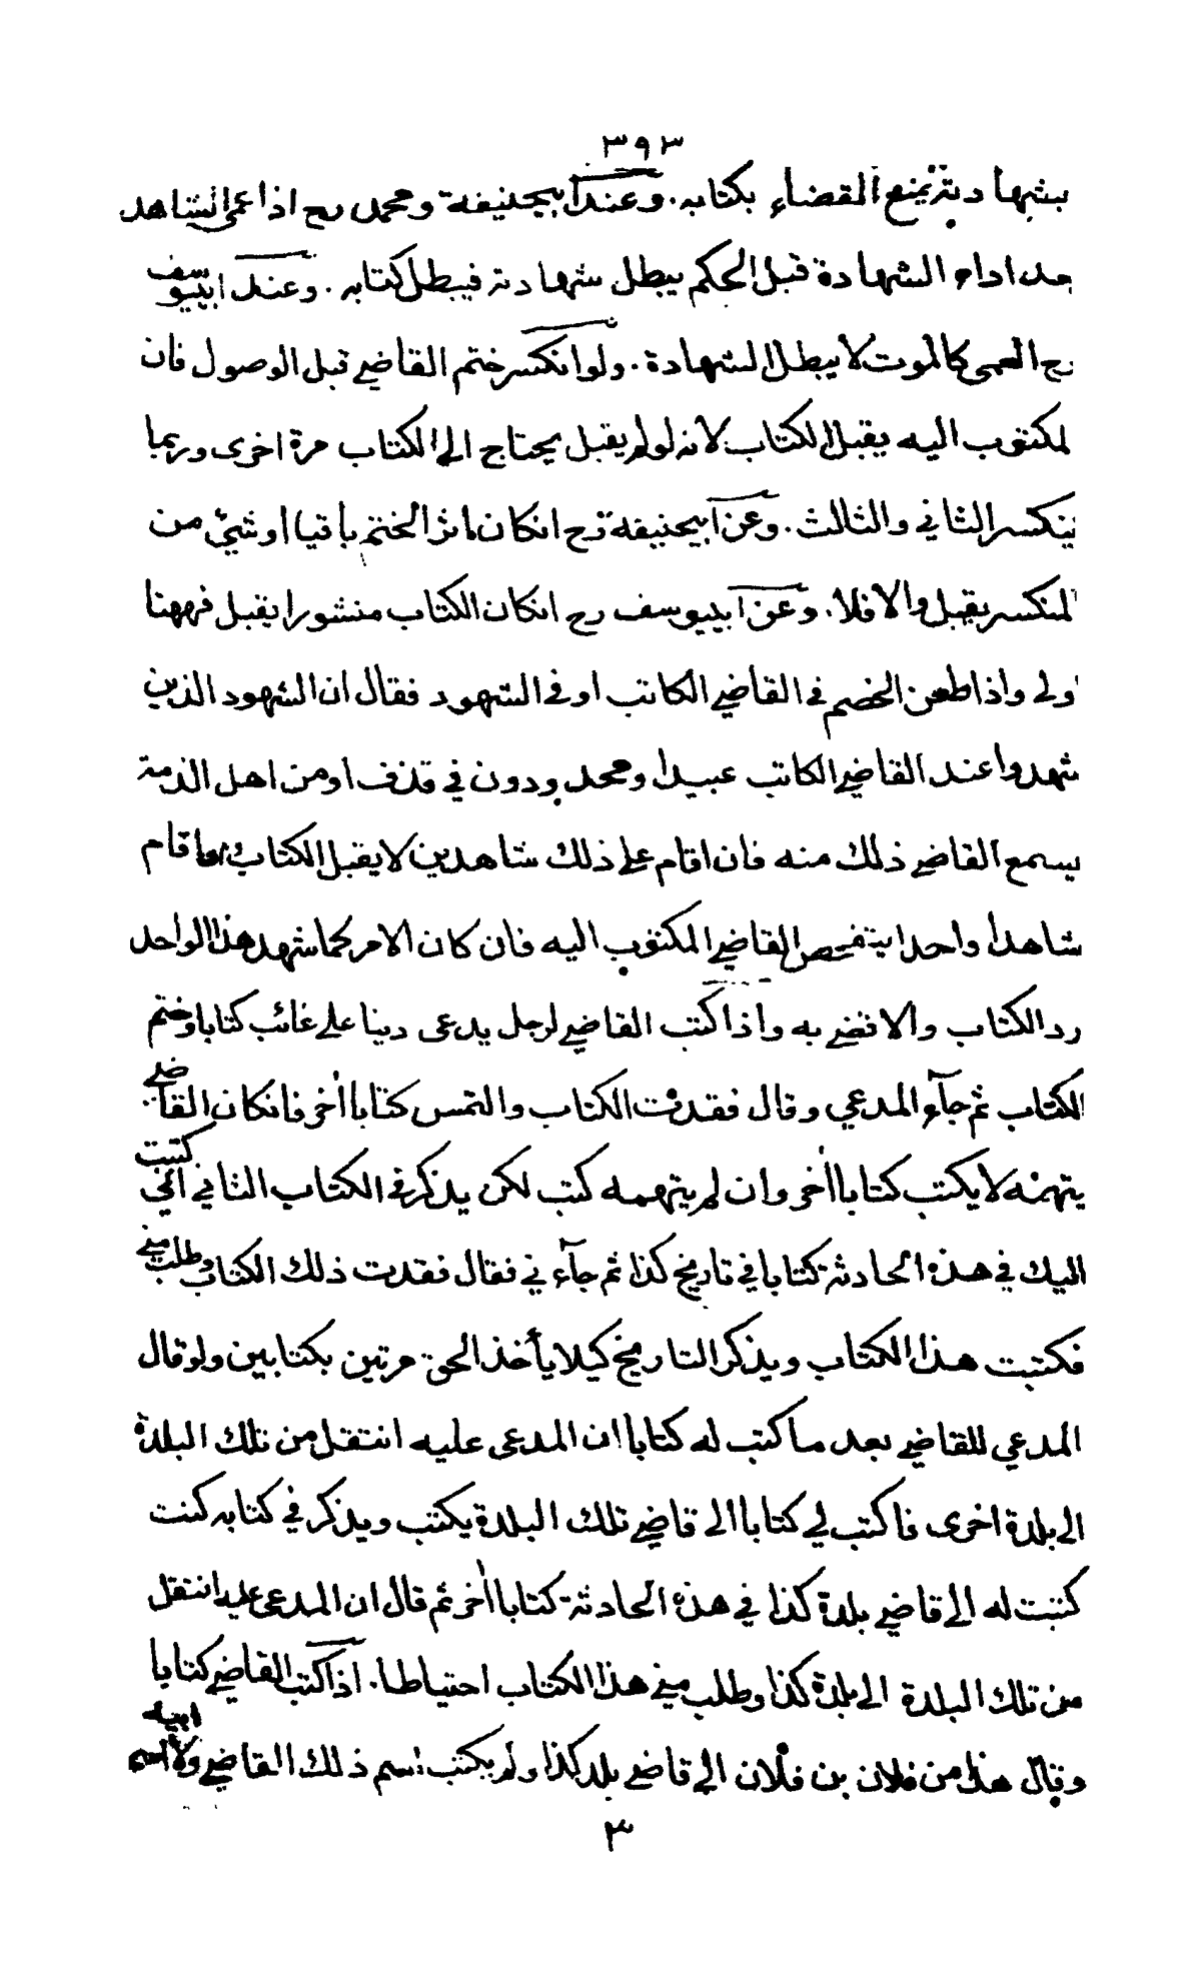 ٣٩٣
بشهادته يمنع القضاء بكتابه. وعند ابيحنيفة ومحمد رح اذا عمى الشاهد
بعد اداء الشهادة قبل الحكم يبطل شهادته فيبطل كتابه. وعند ابييوسف
رح العمى كالموت لا يبطل الشهادة. ولو انكسر ختم القاضي قبل الوصول فان
المكتوب اليه يقبل الكتاب لانه لو لم يقبل يحتاج الى الكتاب مرة اخرى وربما
ينكسر الثاني والثالث. وعن ابيحنيفة رح انكان اثر الختم باقيا او شيئ من
المنكسر يقبل والا فلا. وعن ابييوسف رح انكان الكتاب منشورا يقبل فههنا
اولى واذا طعن الخصم في القاضي الكاتب او في الشهود فقال ان الشهود الذين
شهدوا عند القاضي الكاتب عبيدا ومحدودون في قذف او من اهل الذمة
يسمع القاضي ذلك منه فان اقام على ذلك شاهدين لا يقبل الكتاب واما اقام
شاهدا واحدا يتفحص القاضي المكتوب اليه فان كان الامر كما شهد هذا الواحد
رد الكتاب والا قضى به واذا كتب القاضي لرجل يدعى دينا على غائب كتابا وختم
الكتاب ثم جآء المدعي وقال فقدت الكتاب والتمس كتابا اخر فانكان القاضي
يتهمه لا يكتب كتابا اخر وان لم يتهمه كتب لكن يذكر في الكتاب الثاني اني كتبت
اليك في هذه الحادثة كتابا في تاريخ كذا ثم جآء ني فقال فقدت ذلك الكتاب وطلب مني
فكتبت هذا الكتاب ويذكر التاريخ كيلا يأخذ الحق مرتين بكتابين ولو قال
المدعي للقاضي بعد ما كتب له كتابا ان المدعى عليه انتقل من تلك البلدة
الى بلدة اخرى فاكتب لي كتابا الى قاضي تلك البلدة يكتب ويذكر في كتابه كنت
كتبت له الى قاضي بلدة كذا في هذه الحادثة كتابا اخر ثم قال ان المدعى عليه انتقل
من تلك البلدة الى بلدة كذا وطلب مني هذا الكتاب احتياطا. اذا كتب القاضي كتابا
وقال هذا من فلان بن فلان الى قاضي بلد كذا ولم يكتب اسم ذلك القاضي ولا اسم ابيه
٣